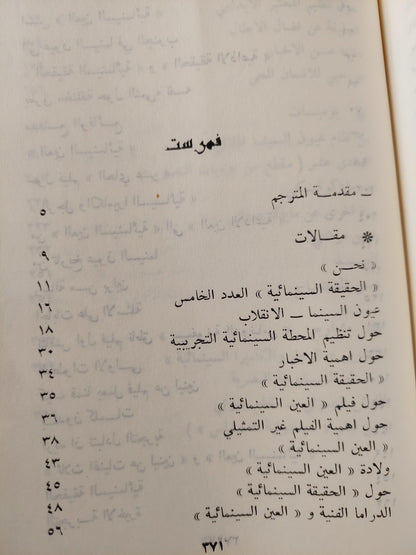 فهرست
ــ مقدمة المترجم
٥
* مقالات
٩
« نحـن »
١١
« الحقيقة السينمائية » العدد الخامس
١٦
عيون السينما ــ الانقلاب
١٨
حول تنظيم المحطة السينمائية التجريبية
٣٠
حول اهمية الاخبار
٣٤
« الحقيقة السينمائية »
٣٥
حول فيلم « العين السينمائية »
٣٦
حول اهمية الفيلم غير التمثيلي
٣٨
« العين السينمائية »
٤٣
ولادة « العين السينمائية »
٤٥
حول « الحقيقة السينمائية »
٤٨
الدراما الفنية و « العين السينمائية »
٥٦
٣٧١